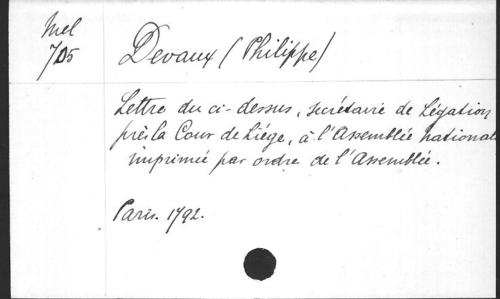 Mel
705
Devaux (Philippe)
Lettre du ci-dessus, secrétaire de Légation
près la Cour de Liége, à l'Assemblée national
imprimée par ordre de l'Assemblée.
Paris. 1792.